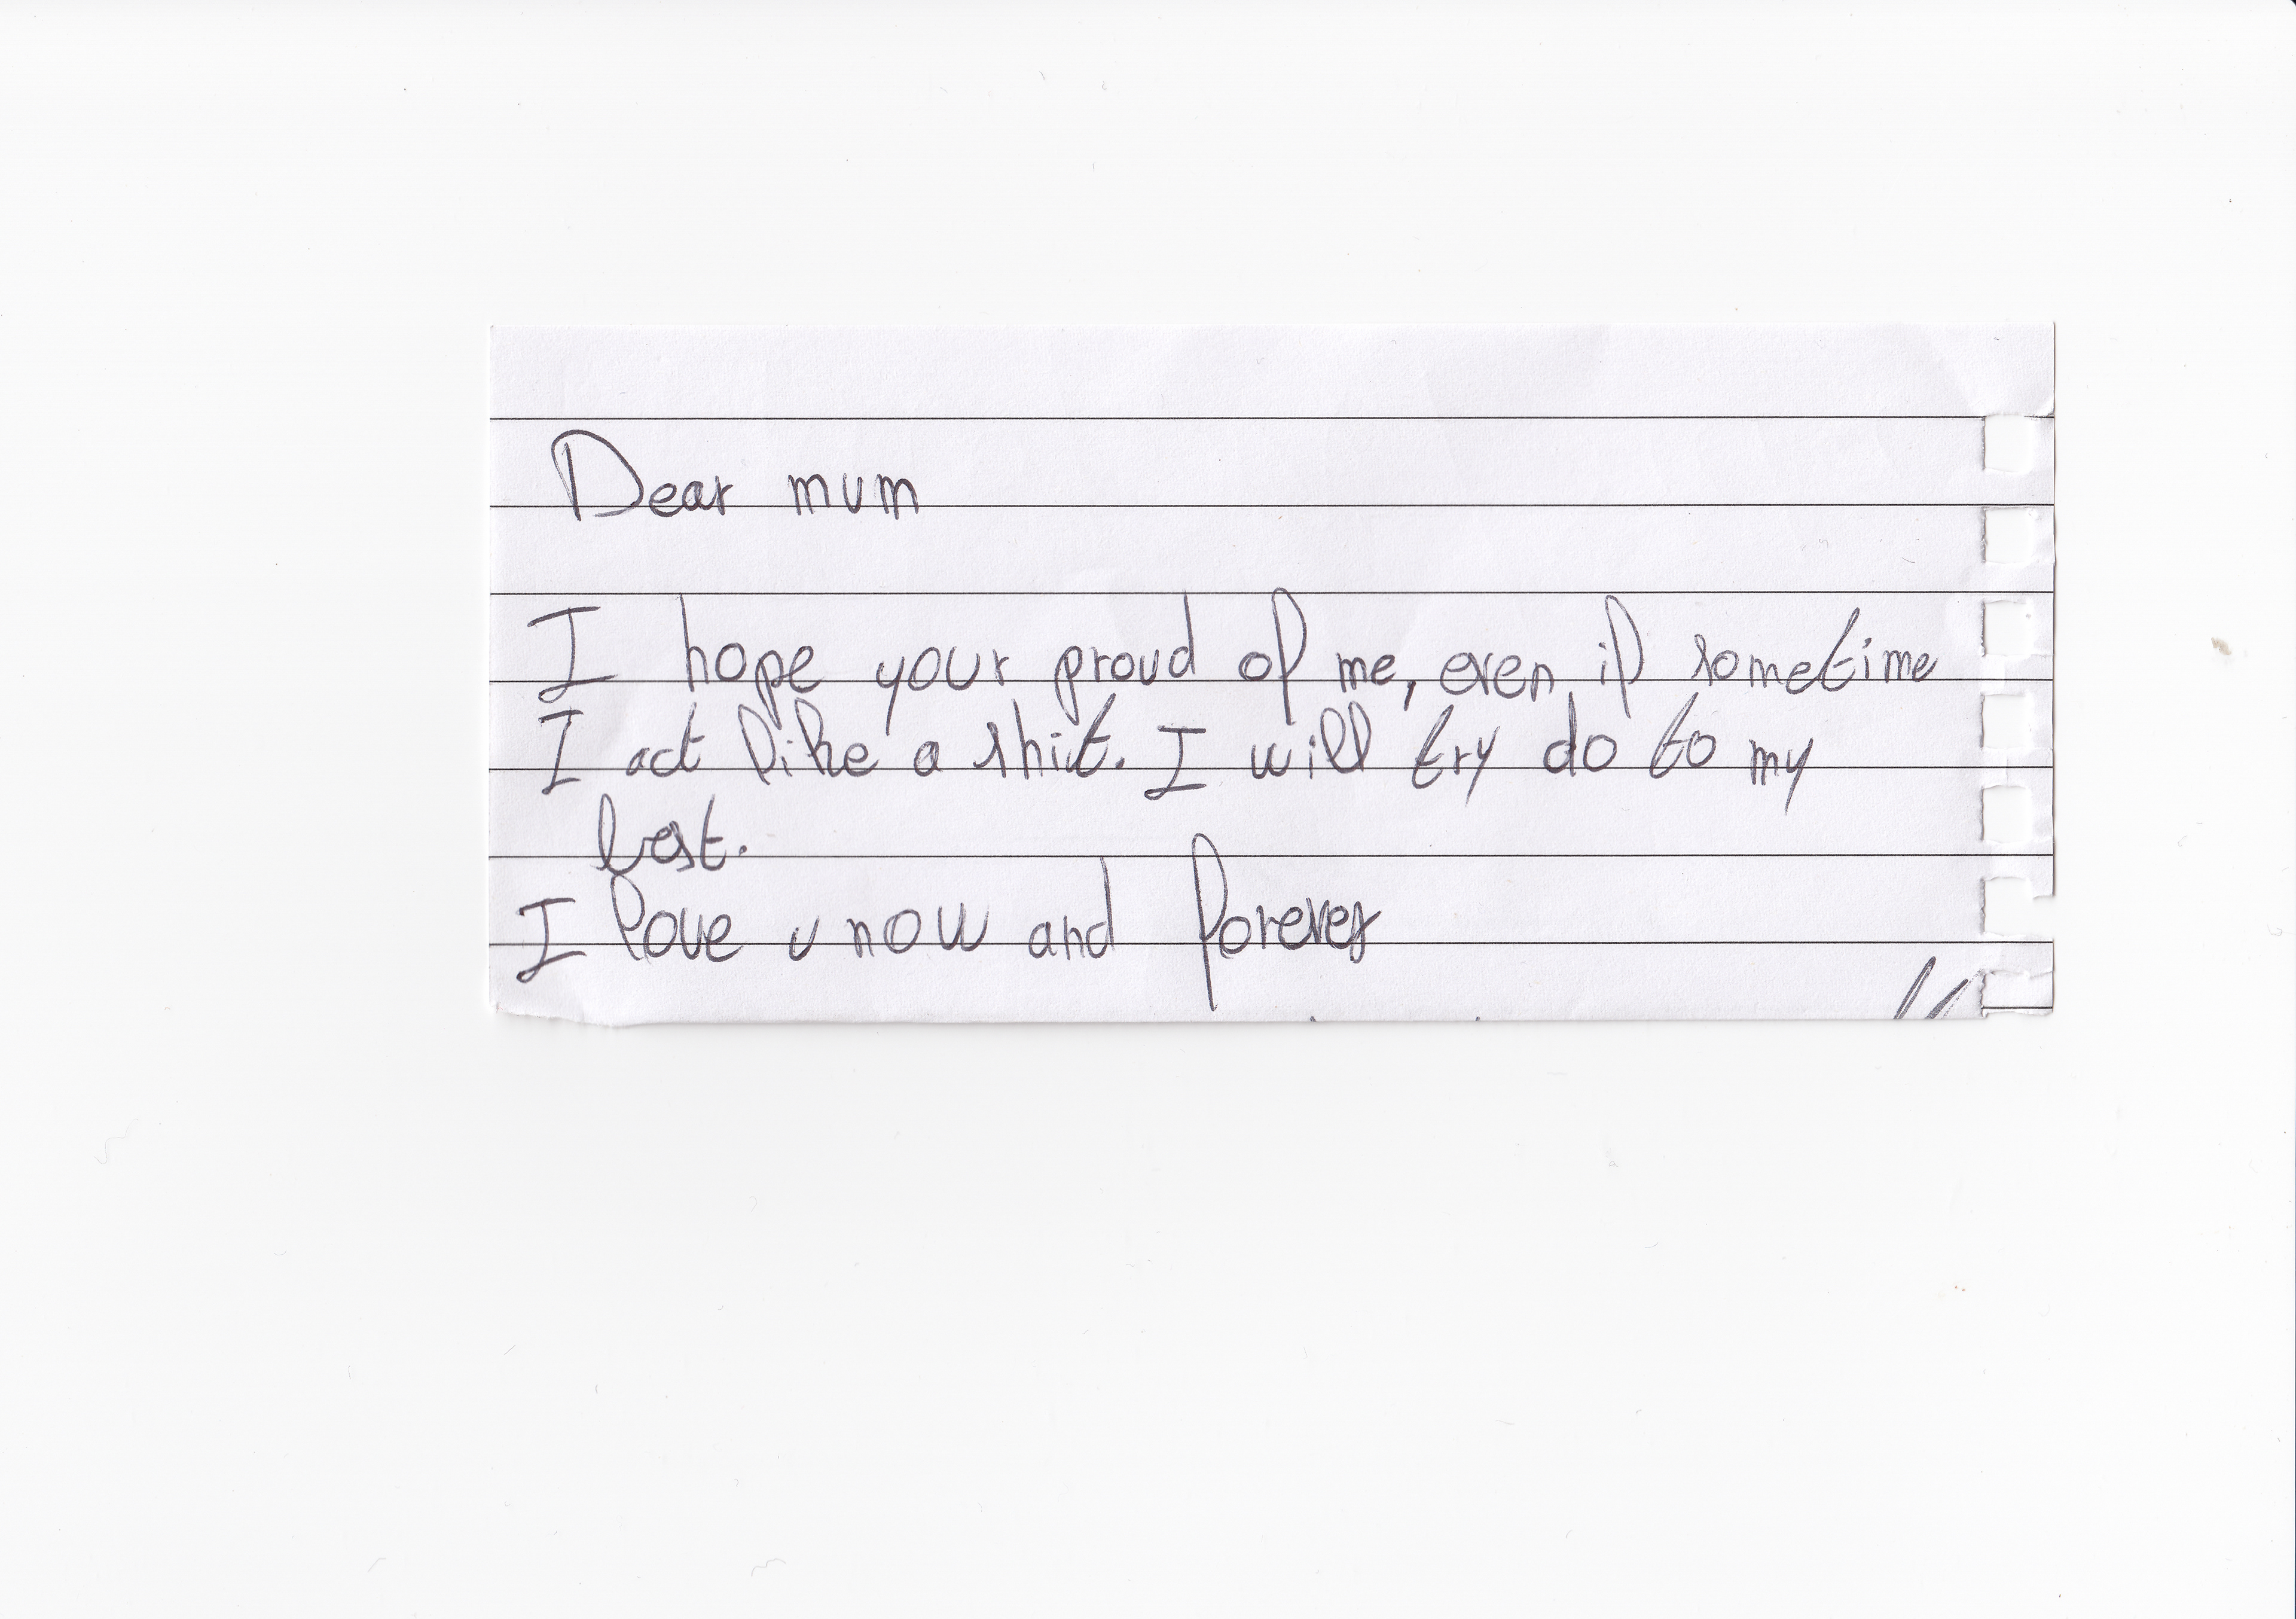 Dear mum
I hope your proud of me, even if sometime
I act like a shit. I will try do to my
best.
I love u now and forever